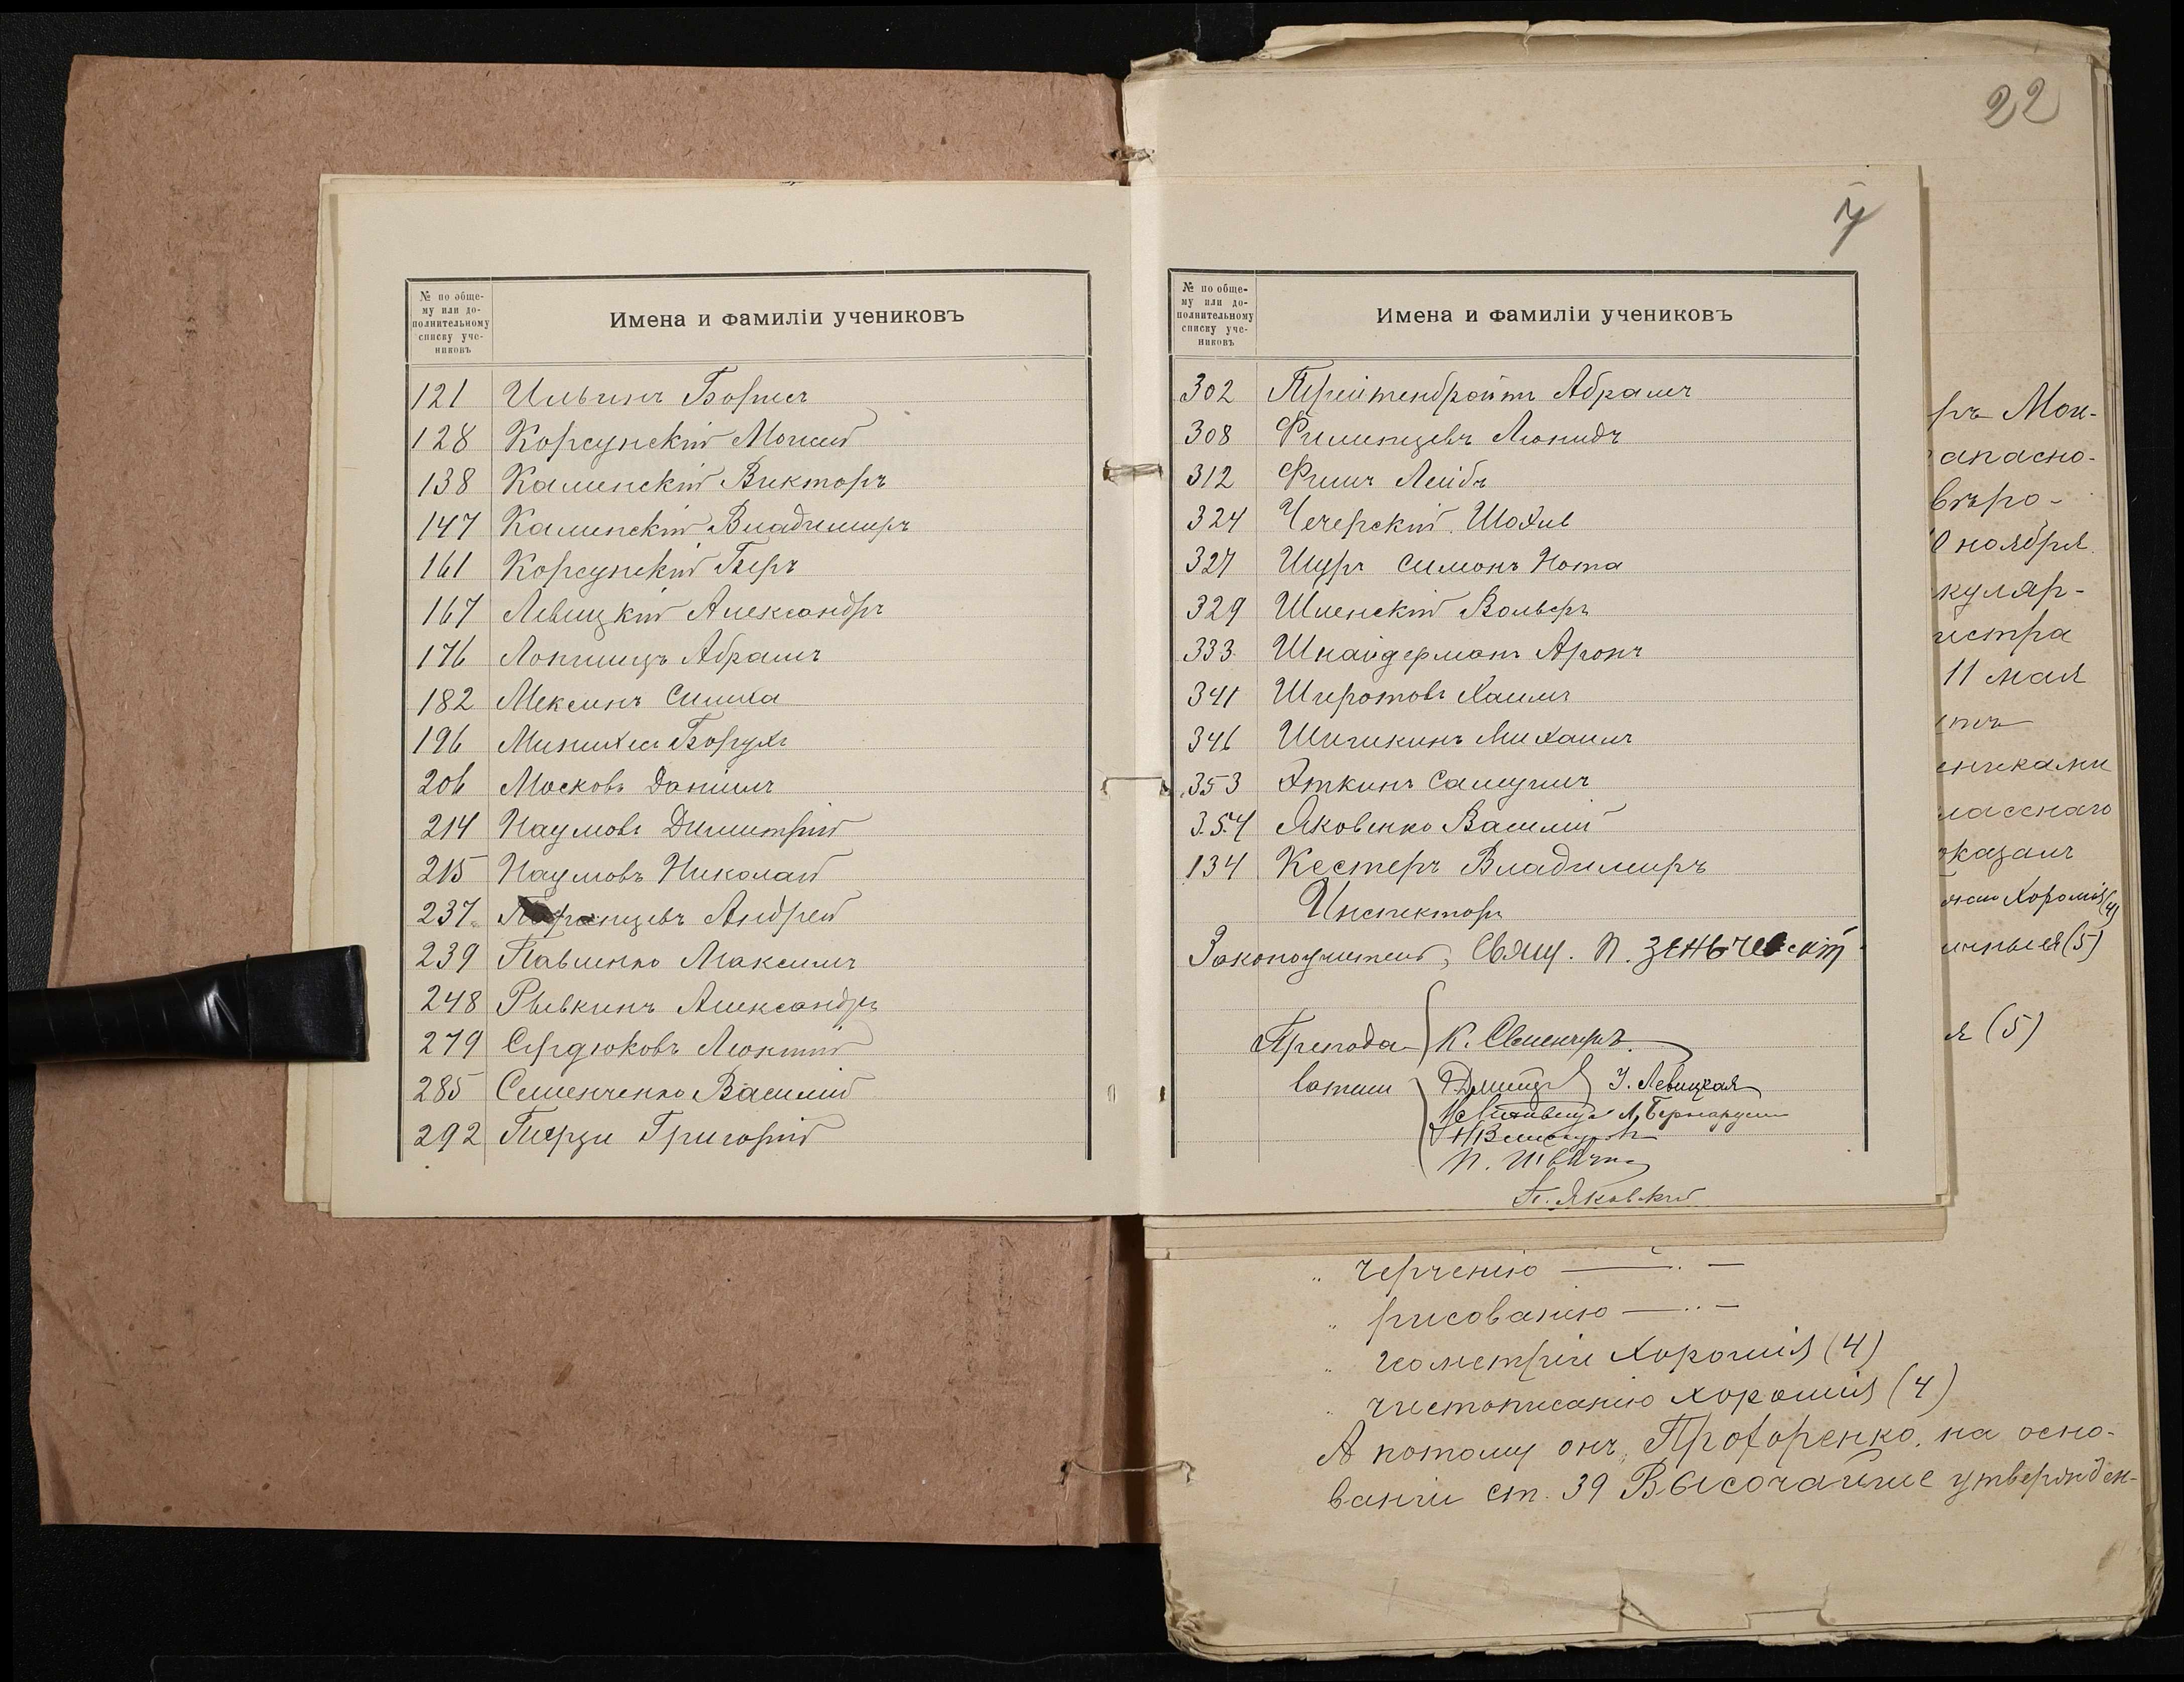 № по обще-
му или до-
полнительному
списку уче-
никовъ
Имена и фамиліи учениковъ
121 Ильинъ Борисъ
128 Корсунскій Моисей
138 Каменскій Викторъ
147 Каминскій Владимиръ
161 Корсунскій Беръ
167 Левицкій Александръ
176 Лопшицъ Абрамъ
182 Мексинъ Симха
196 Борухъ
206 Москов Даніилъ
214 Наумовъ Димитрій
215 Наумовъ Николай
237 Андрей
239 Павленко Максимъ
248 Рывкинъ Александръ
279 Сердюковъ Леонтій
285 Семенченко Василій
292 Григорій
22
7
№ по обще-
му или до-
полнительному
списку уче-
никовъ
Имена и фамиліи учениковъ
302 Абрамъ
308 Филипцевъ Леонидъ
312 Лейбъ
324 Чечерскій
327 Щуръ Симонъ Нота
329 Шленскій Вольфъ
333 Шнайдерманъ Аронъ
341 Широтовъ Хаимъ
346 Шишкинъ Михаилъ
353 Эткинъ Самуилъ
354 Яковенко Василій
134 Кестеръ Владимиръ
Инспекторъ
Законоучитель, Свящ. П. Зеньческій
Препода- К.
ватели У. Левицкая
П.
П. Яковскій
ръ Мои-
апасно-
вѣро-
0 ноября
куляр-
истра
11 мая
ениками
лясснаго
оказалъ
Хорошія (4)
ичныя (5)
я (5)
„ черченію — „ —
„ рисованію — „ —
„ геометріи хорошія (4)
„ чистописанію хорошія (4)
А потому онъ, Прохоренко, на осно-
ваніи ст. 39 Высочайше утвержден-